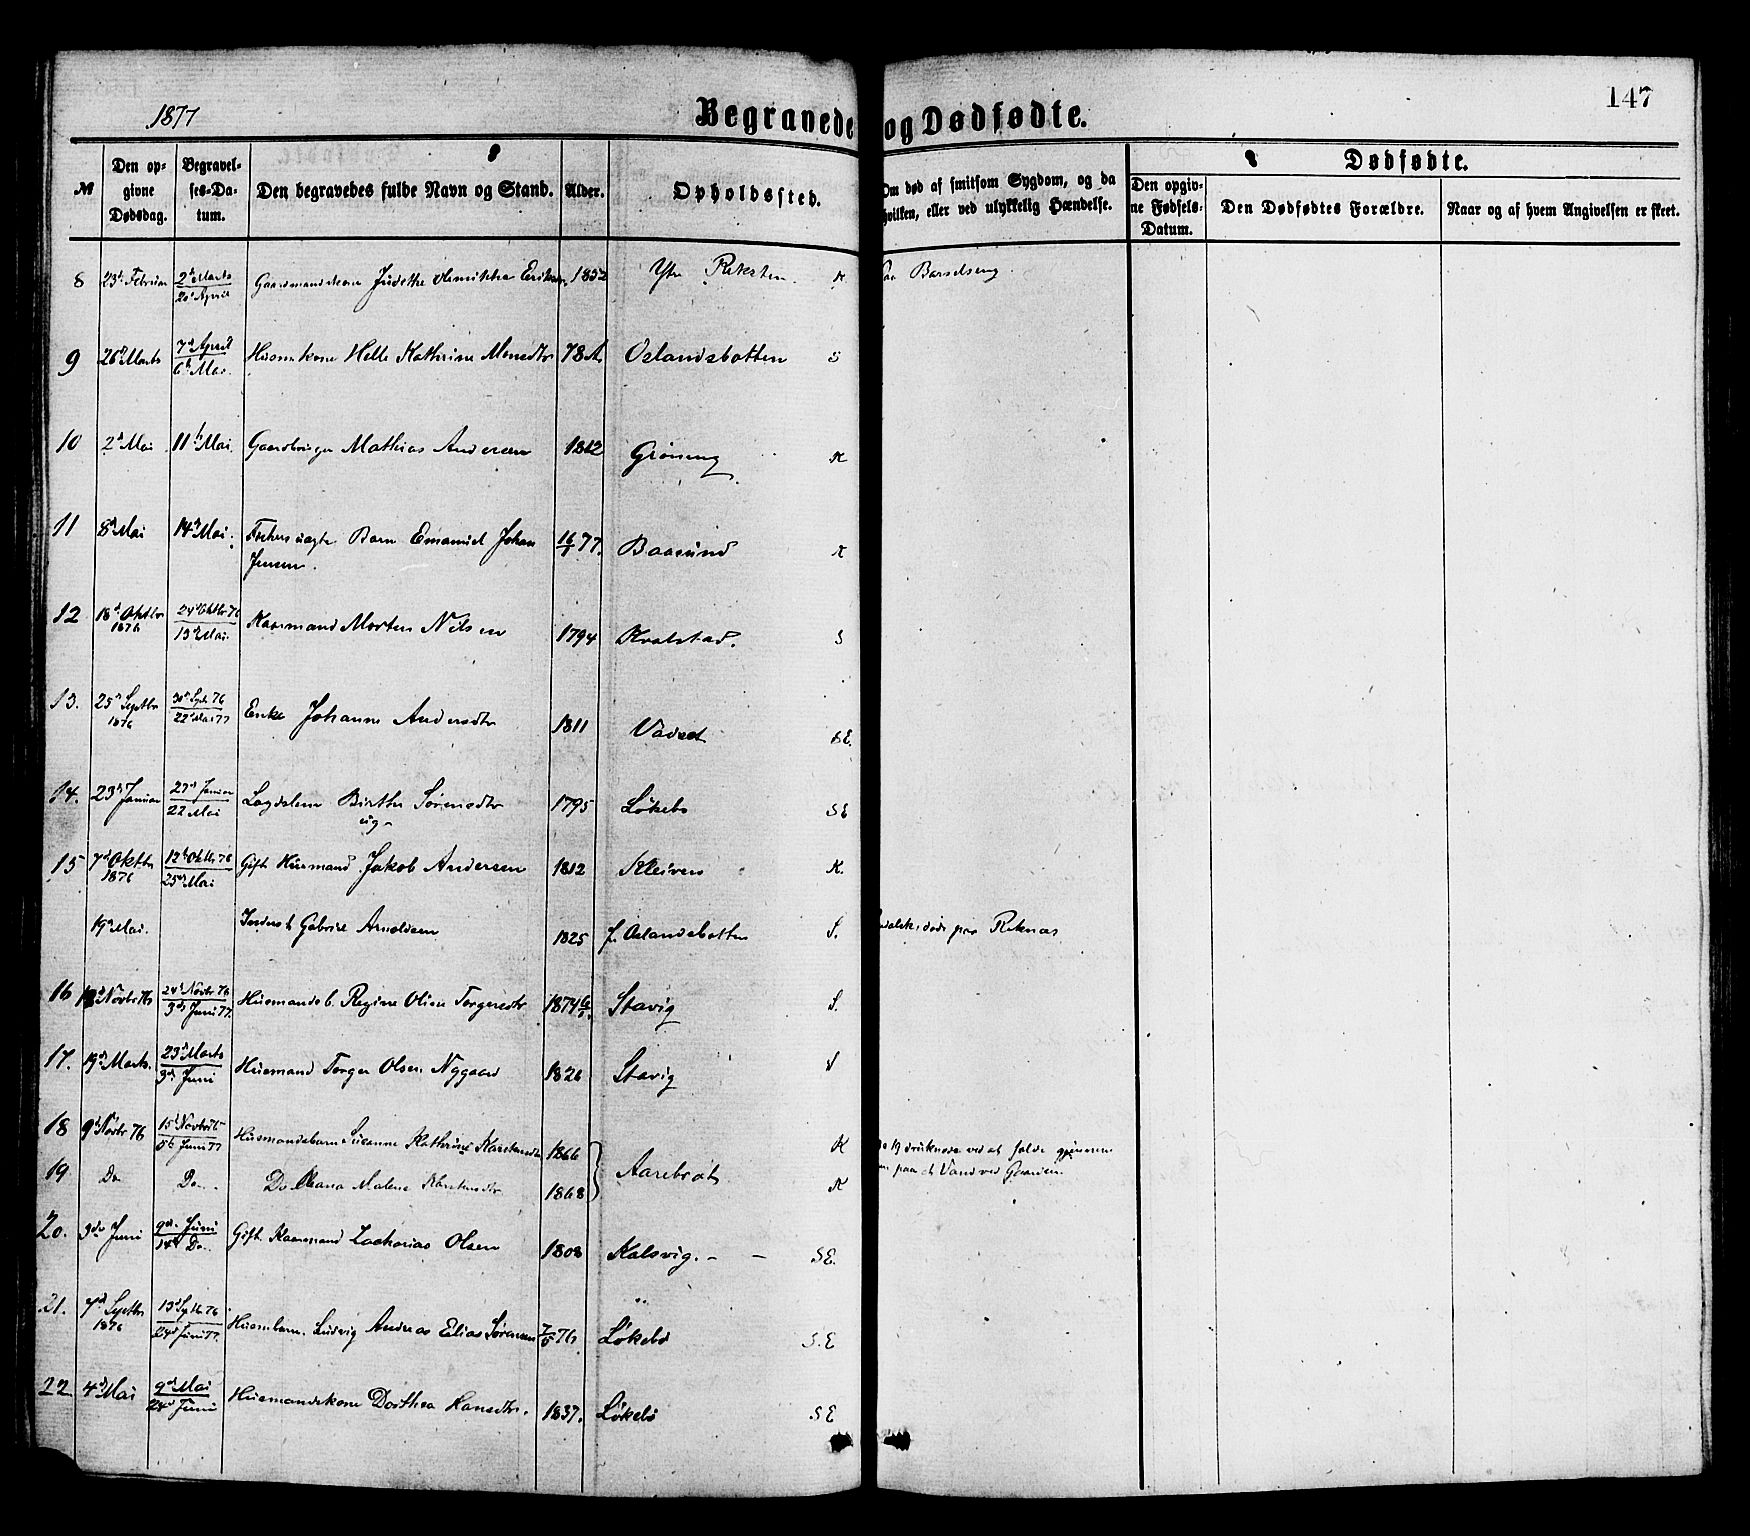 1877
Begravede og Dødfødte.
147
№
Den op-
givne
Dødsdag.
Begravel-
ses-Da-
tum.
Den begravedes fulde Navn og Stand.
Alder.
Opholdssted.
Om død af smitsom Sygdom, og da
hvilken, eller ved ulykkelig Hændelse.
Dødfødte.
Den opgiv-
ne Fødsels-
Datum.
Den Dødfødtes Forældre.
Naar og af hvem Angivelsen er skeet.
8 23de Februar 2den Marts 20de April Gaardmandskone 1852 Ytre K Paa Barselseng.
9 26de Marts 7de April 6te Mai. Huusm.kone Helle Kathrine Monsdtr 78 A. Oslandsbotten S
10 2den Mai 11te Mai. Mathias Andersen 1812 Grøning K
11 8de Mai 14de Mai. Barn Emanuel Johan 16/1 77. Baasund K
Jensen.
12 18de Oktbr 1876 24de Oktbr 76 13de Mai. Kaarmand Morten Nilsen 1794 Kvalstad. S
13. 25de Septbr 1876 30te Septr 76 22de Mai 77 Enke Johanne Andersdtr 1811 Vadset SE.
14. 23de Januar 27de Januar 22 Mai Lægdslem Birthe Sørensdtr 1795 Løkebø SE
ug-
15 7de Oktbr 1876 12te Oktbr 76 25de Mai Gift Husmand Jakob Andersen 1812 Kleiven K.
19de Mai. Inderst Gabriel Arnoldsen 1825 f. Oslandsbotten S. døde paa Reknæs
16 18de Novbr 76 24de Novbr 76 3die Juni 77. Husmandsb. Regine Oline Torgersdtr 1874 Stavig S.
17. 19de Marts. 23de Marts 3die Juni Husmand Torger Olsen Nygaard 1826 Stavig S
18 9de Novbr 76 15de Novbr 76 Juni 77 Husmandsbarn Susanne Kathrine Karstensdtr 1866 Aarebrot K 19 druknede ved at falde gjennem
19. Do Do. Do Oleana Malene Karstensdtr 1868 K paa et Vand ved Gaarden.
20. 3die Juni 9de Juni 14de Do. Gift Kaarmand Zacharias Olsen 1808 Kalsvig. - - SE.
21. 7de Septbr 1876 13de Septb. 76 24de Juni 77. Huusm.barn. Ludvig Andreas Elias Sørensen 7/5 76. Løkebø S.E
22 4de Mai 9de Mai 24de Juni Husmandskone Dorthea Hansdtr. 1837. Løkebø SE